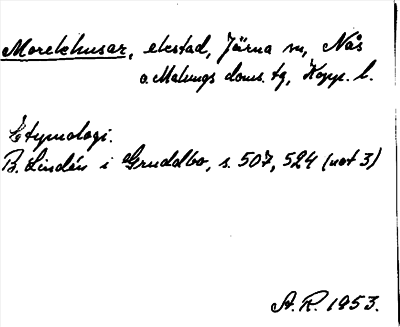 Morekhusar, ekstad, Järna sn, Nås
o. Malungs doms. tg, Kopp. l.
Etymologi.
B. Lindén i Gruddbo, s. 507, 524 (not 3)
A. R. 1953.